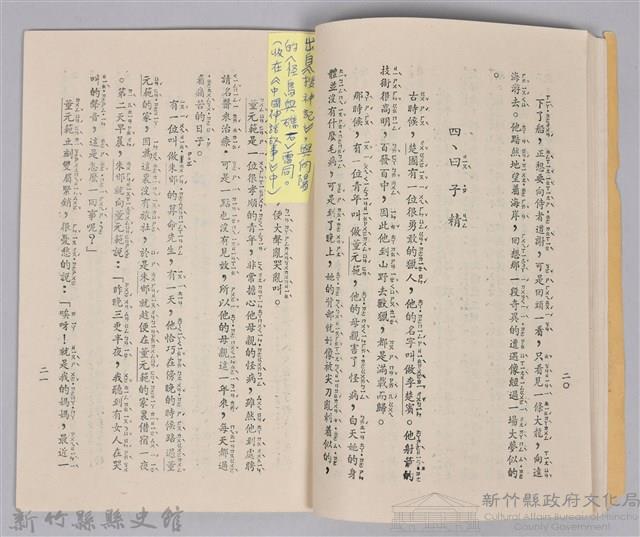 下了船，正想要向侍者道謝，可是回頭一看，只看見一條大龍，向遠
海游去。他黯然地望著海岸，回想那一段奇異的遭遇像經過一場大夢似的
。
四、臼子精
古時候，楚國有一位很勇敢的獵人，他的名字叫做李楚賓。他射箭的
技術很高明，百發百中，因此他到山野去獸獵，都是滿載而歸。
那時候，有一位青年叫做董元範，他的母親害了怪病，白天她的身
體並沒有什麼毛病，可是到了晚上，她的背部就好像被尖刀亂刺着似的，
二〇
出自《搜神記》，與向陽
的〈怪鳥與礁石〉雷同。
（收在《中國神話故事》中）
便大聲亂哭亂叫。
董元範是一位很孝順的青年，非常擔心他母親的怪病，雖然他到處聘
請名醫來治療，可是一點也沒有見效，所以他的母親這一年來，每天都過
著痛苦的日子。
有一位叫做朱邯的算命先生，有一天，他恰巧在傍晚的時候路過董
元範的家，因為這裏沒有旅社，於是朱邯就趁便在董元範的家裏借宿一夜
。第二天早晨，朱邯就向董元範說：「昨晚三更半夜，我聽到有女人在哭
叫的聲音，這是怎麼一回事呢？」
董元範立刻雙眉緊鎖，很憂愁的說：「唉呀！就是我的媽媽，最近一
二一
新竹縣縣史館
新竹縣政府文化局
Cultural Affairs Bureau of Hsinchu
County Government